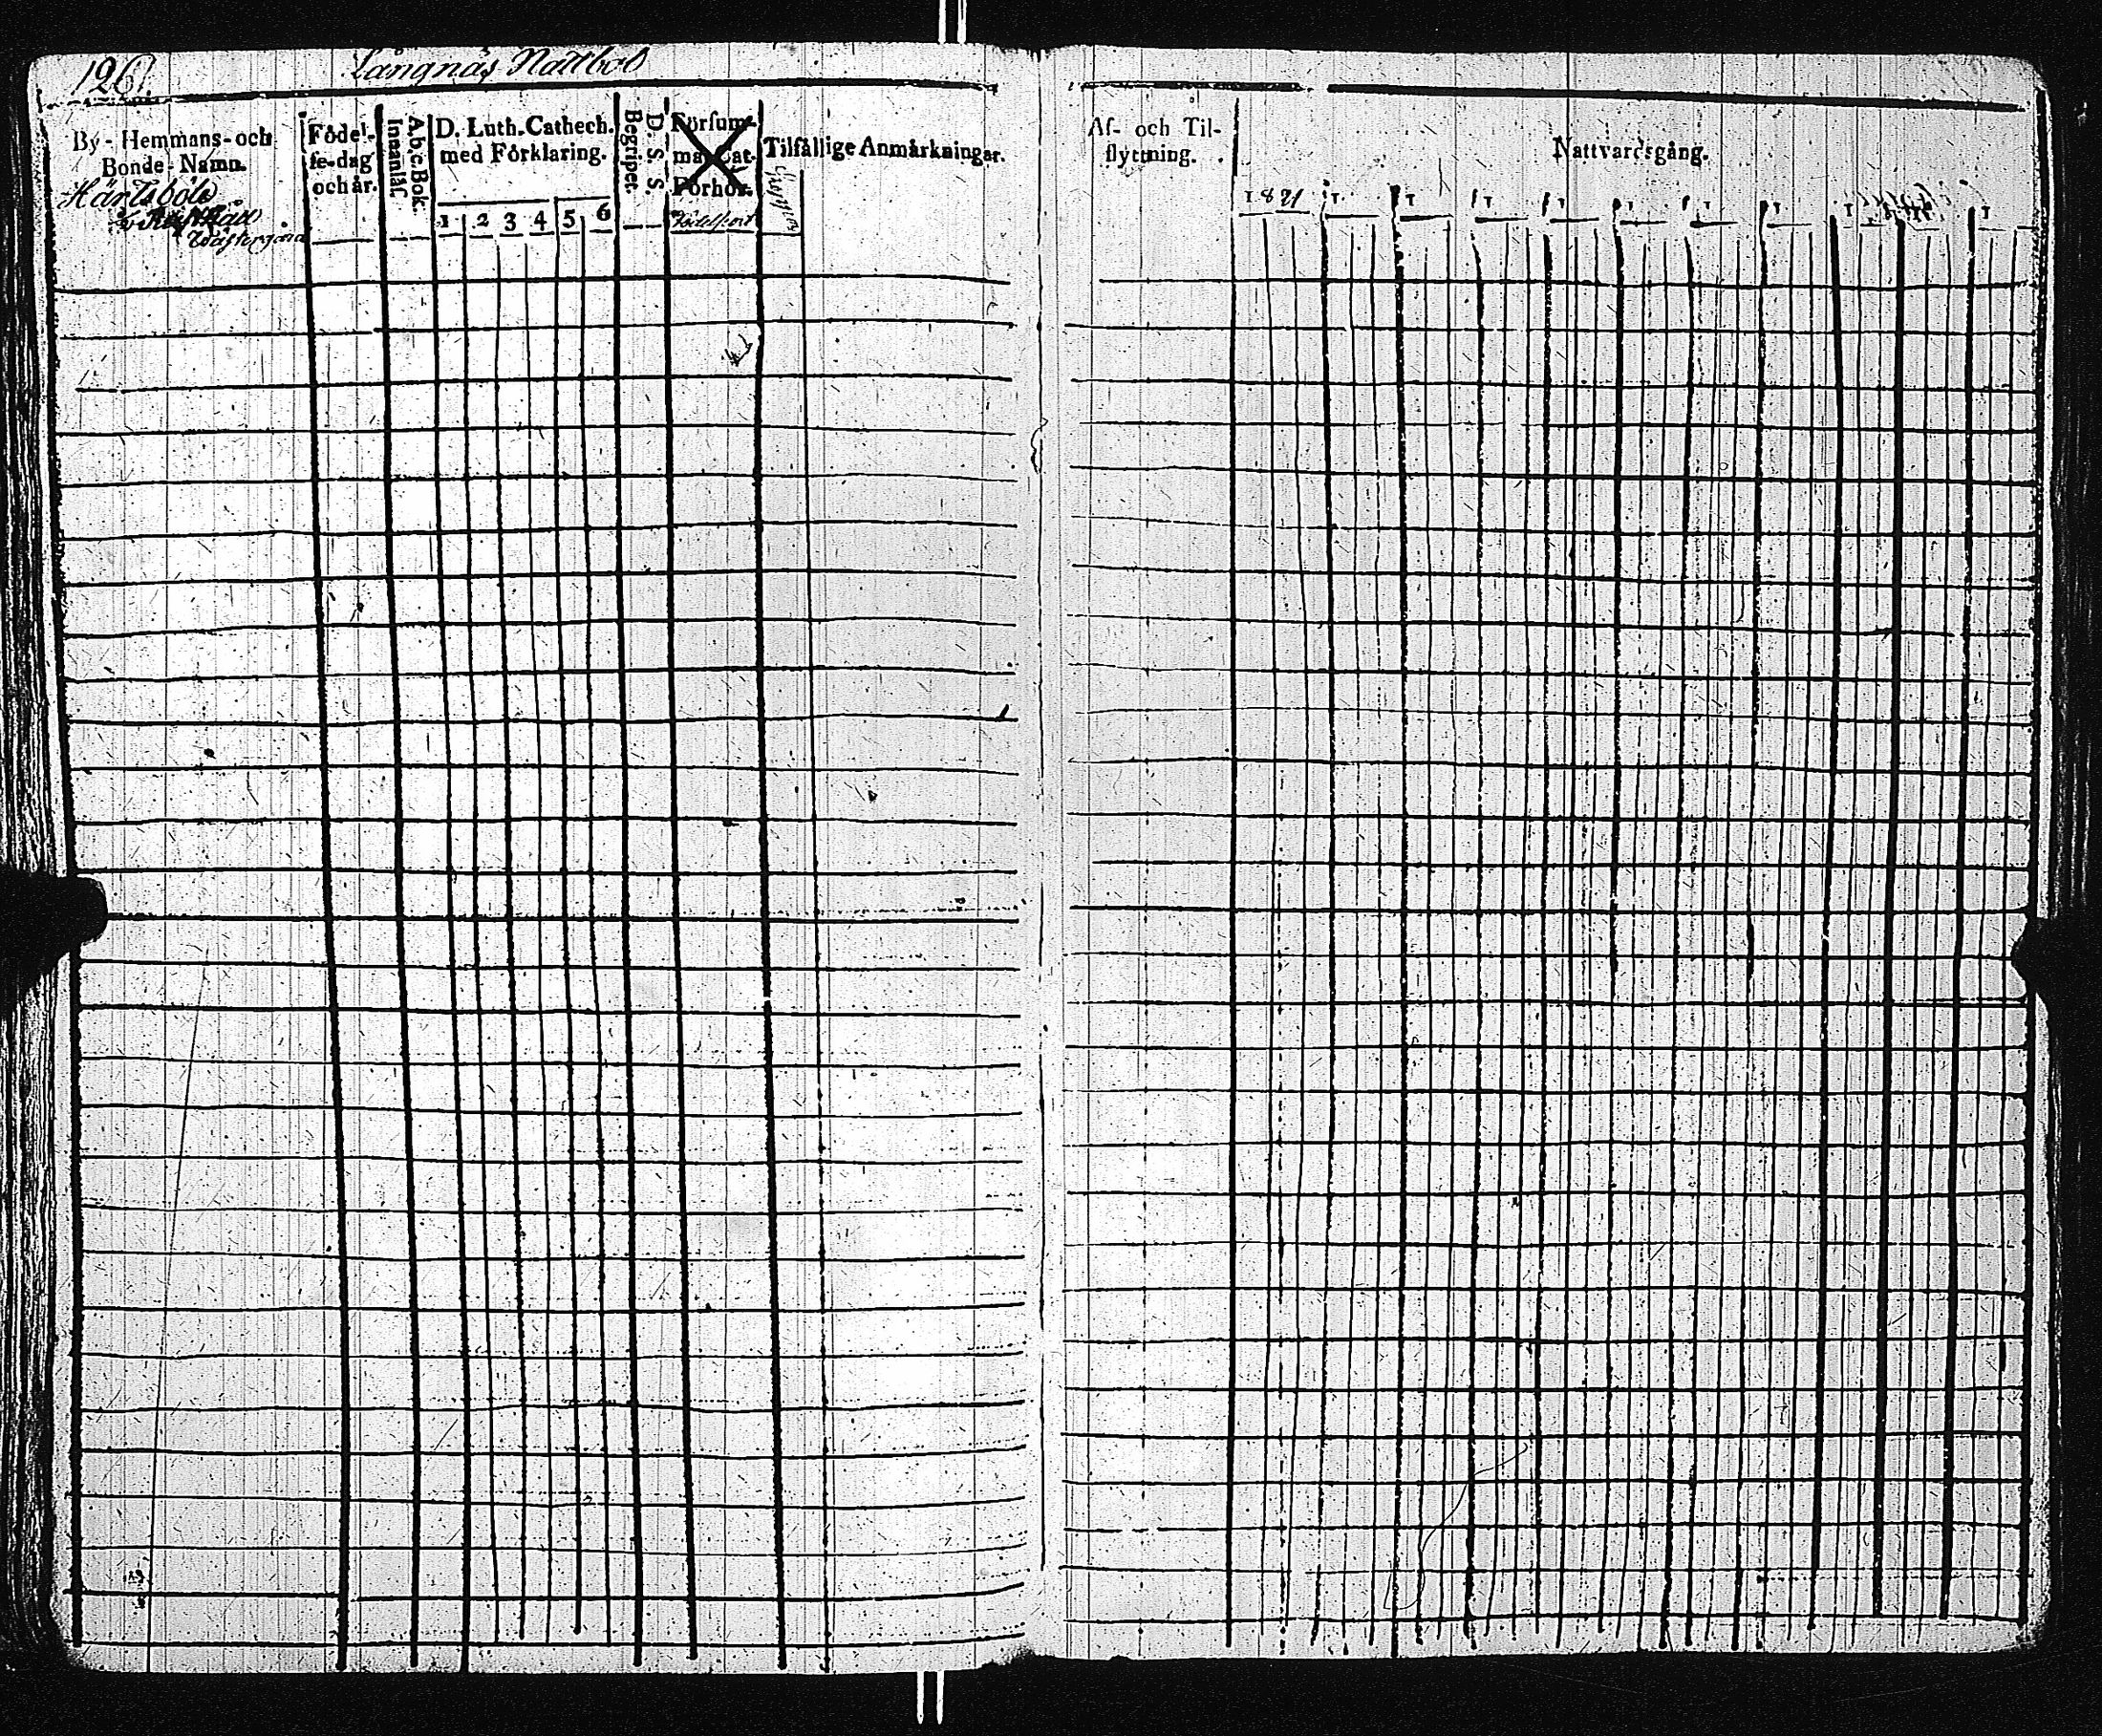 126.
Långnäs Nattbol
By- Hemmans- och
Bonde-Namn.
Härtsböle
Wästergård
Födel-
se-dag
och år.
A.b.c.Bok.
Innanläs.
D. Luth. Cathech.
med Förklaring.
1 2 3 4 5 6
D. S. S.
Begripet.
Försum-
ma Cat.
Förhör.
Födelseort
Tilfällige Anmärkningar.
Af- och Til-
flyttning.
Nattvardsgång.
1821